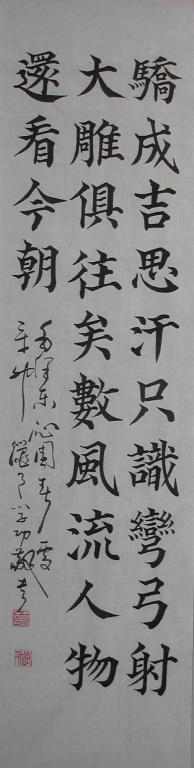 驕成吉思汗只識彎弓射
大雕俱往矣數風流人物
還看今朝
毛澤東沁園春雪
辛卯